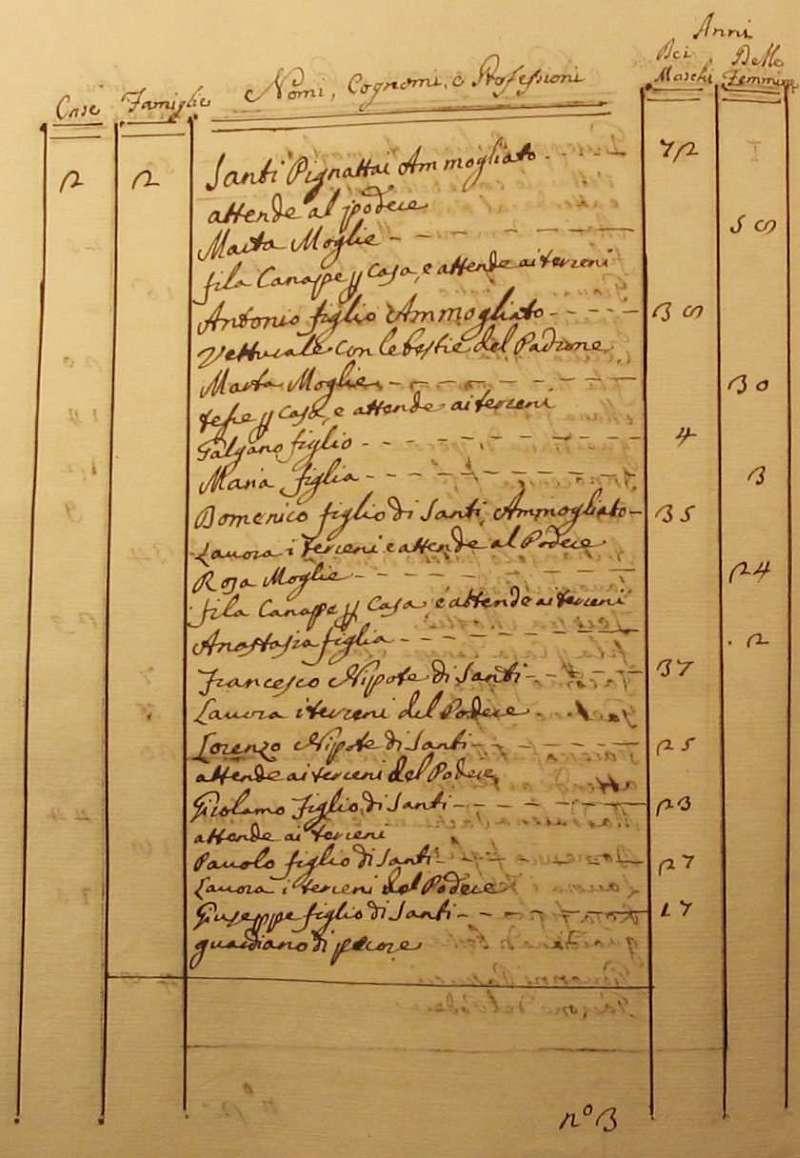 Anni
Case Famiglie Nomi, Cognomi, e Professioni Dei Maschi Delle Femmine
2 2 Santi Pignattai Ammogliato 72
attende al podere
Marta Moglie 50
fila Canape p Casa, e attende ai terreni
Antonio figlio Ammogliato 30
Vetturale con le bestie del Padrone
Marta Moglie 30
tesse p Casa, e attende ai terreni
Galgano figlio 4
Maria figlia 3
Domenico figlio di Santi Ammogliato 35
Lavora i terreni e attende al Podere
Rosa Moglie 24
fila Canape p Casa, e attende ai terreni
Anastasia figlia 2
Francesco Nipote di Santi 37
Lavora i terreni del Podere
Lorenzo Nipote di Santi 25
attende ai terreni del Podere
Girolamo figlio di Santi 23
attende ai terreni
Pavolo figlio di Santi 27
Lavora i terreni del Podere
Giuseppe figlio di Santi 17
guardiano di pecore
n° 3